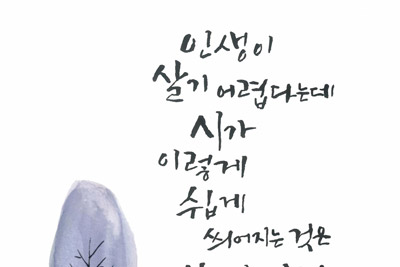 인생이
살기 어렵다는데
시가
이렇게
쉽게
씌어지는 것은